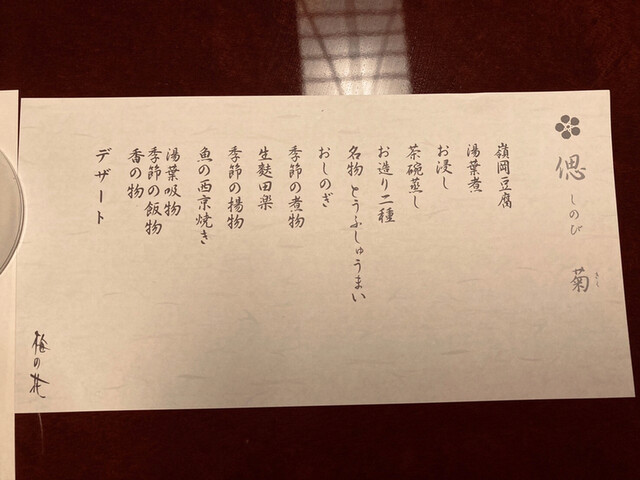 偲 菊
しのび きく
嶺岡豆腐
湯葉煮
お浸し
茶碗蒸し
お造り二種
名物 とうふしゅうまい
おしのぎ
季節の煮物
生麩田楽
季節の揚物
魚の西京焼き
湯葉吸物
季節の飯物
香の物
デザート
梅の花